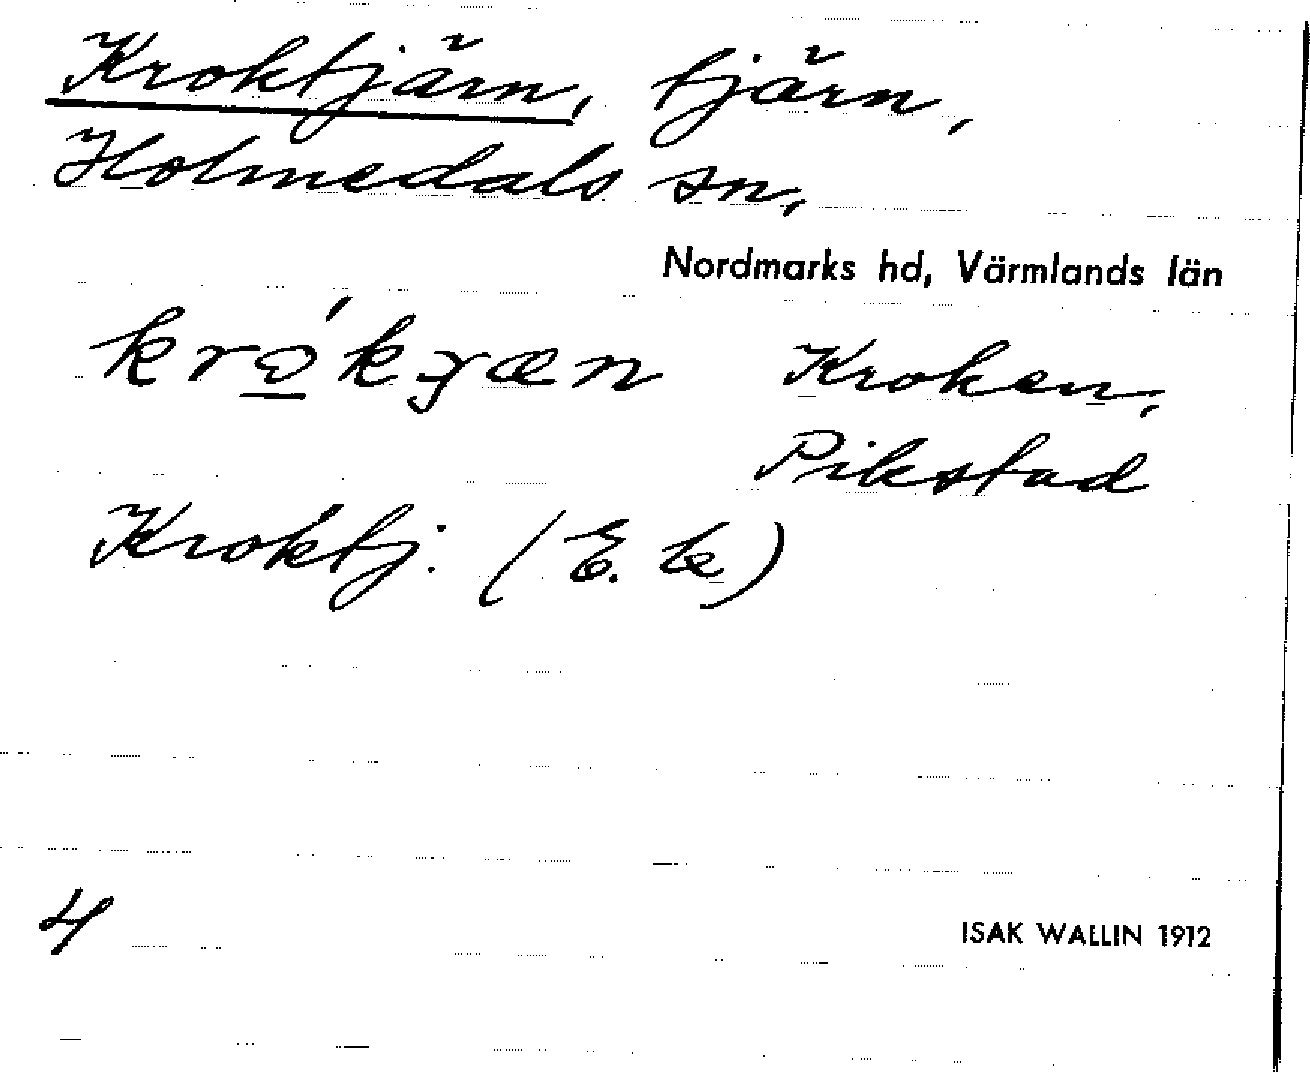 Kroktjärn, tjärn,
Holmedals sn,
Nordmarks hd, Värmlands län
Kroken,
Pikstad
Kroktj. (E. k)
4
ISAK WALLIN 1912